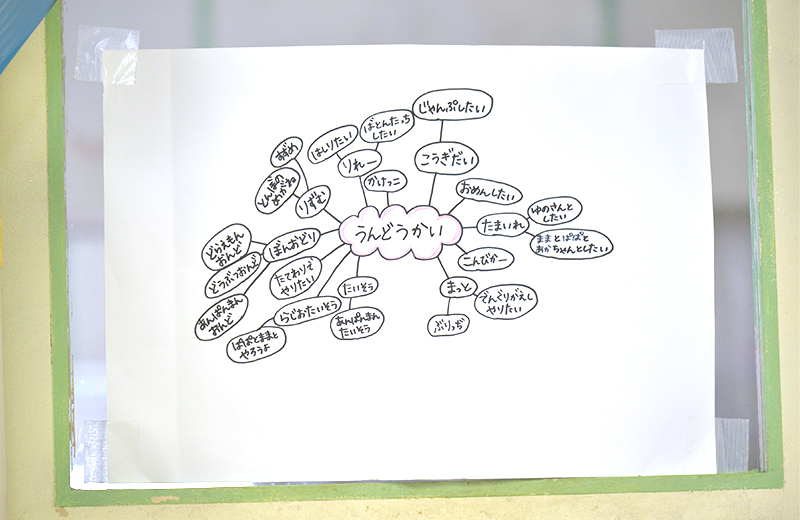 うんどうかい
じゃんぷしたい
こうぎだい
ばとんたっち
したい
はしりたい
りれー
かけっこ
すずめ
とんぼの
めがね
りずむ
ぼんおどり
どらえもん
おんど
どうぶつおんど
あんぱんまん
おんど
たてわりで
やりたい
らじおたいそう
ぱぱとままと
やろうよ
たいそう
あんぱんまん
たいそう
おめんしたい
たまいれ
ゆのさんと
したい
ままとぱぱと
あかちゃんとしたい
こんびかー
まっと
でんぐりがえし
やりたい
ぶりっぢ